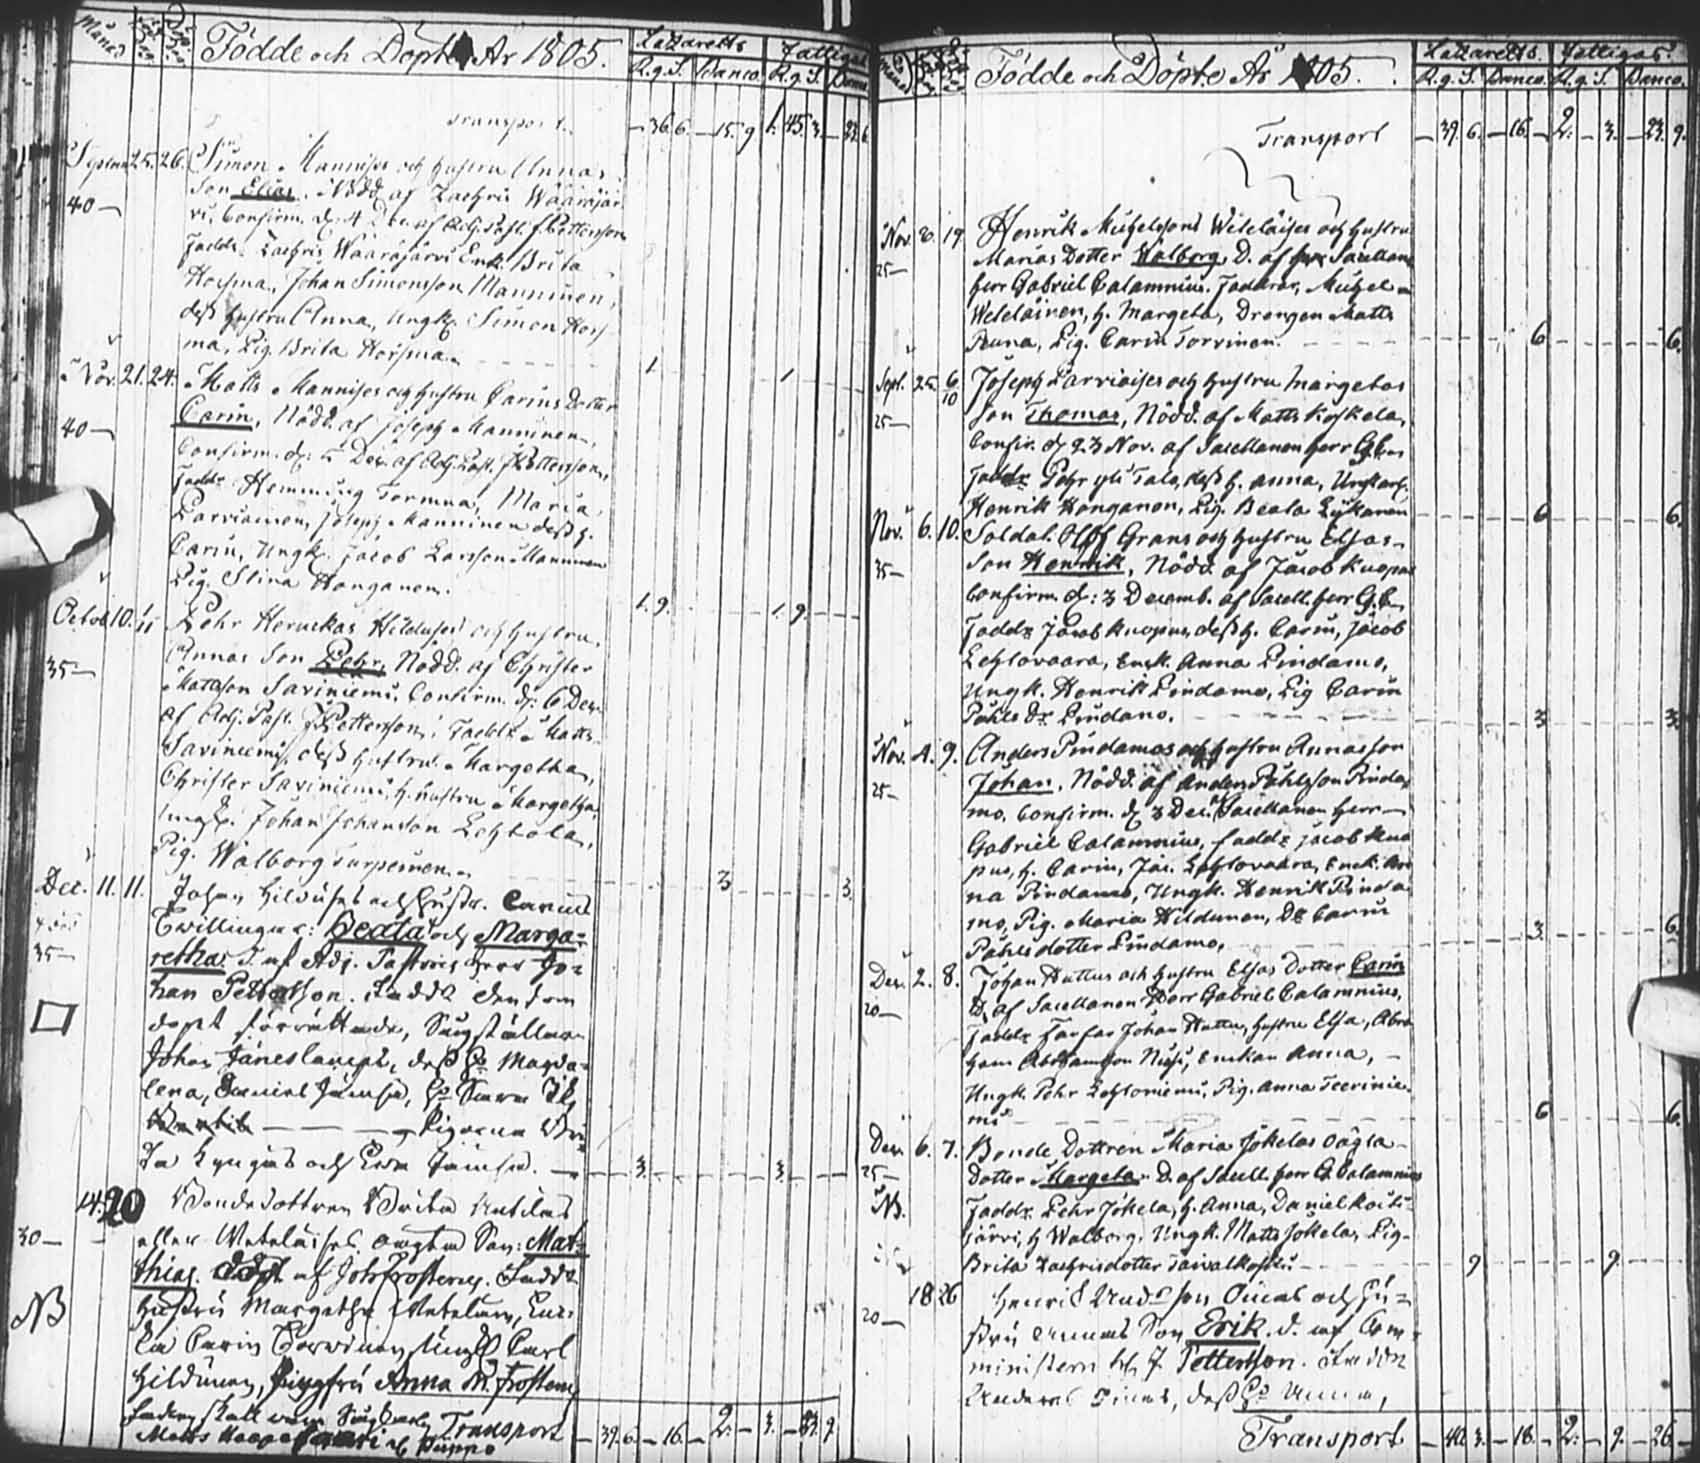 Månad
Födde och Döpte År 1805.
Lazaretts
Fattigas
R.g.S. Banco. R.g.S. Banco
Transport.
36. 6. 15. 9 1. 45. 3.
Septem 25. 26. Simon Mannises och hustru Annas
Son Elias. Nödd. af Zachris Wääräjär
40
vi, Confirm. d. 4 Dec. af Adj. Past. J Pettersson
Faddr. Zachris Wääräjärvi Enk. Brita
Horsma, Johan Simonsson Manninen,
dess hustru Anna, Ungk. Simon Hors
ma, Pig. Brita Horsma.
1 1
Nov. 21. 24. Matts Mannises och hustru Carins Dotter
Carin, Nödd. af Joseph Manninen,
40
Confirm. d. 5 Dec. af Adj. Past. J Pettersson,
Faddr Hemming Tormua, Maria
Parviainen, Joseph Manninen dess h.
Carin, Ungk. Jacob Larsson Manninen
Pig. Stina Honganen.
1. 9. 1. 9.
Octob. 10. 11 Pehr Hernekas Hilduses och hustru
Annas Son Pehr, Nödd. af Christer
35
Mattson Saviniemi, Confirm. d. 6 Dec.
af Adj. Past. J Pettersson, Faddr Matts
Saviniemi, dess hustru Margetha,
Christer Saviniemi, h. hustru Margetha,
Ungk. Johan Johansson Lehtola,
Pig. Walborg Turpeinen.
3 3
Dec. 11. 11. Johan Hilduses och Hustr. Carins
Twillingar: Beata och Marga=
35
retha: D. af Adj. Pastoris Herr Jo=
han Petterson. Faddr den som
dopt förrättade,
Johan Jäneslampi, dess Ho Magda=
lena, Daniel Jämsä, Ho
Pigorna Bri=
ta Kyngäs och Ewa Jämsä.
3. 3.
14. 20 Bondedottren Brita
eller Weteläises oägta Son: Mat=
30
thias. döpt af Joh Frosterus. Faddr
Hustru Margetha Weteläin, Enc=
NB
ka Carin Torvinen, Ungk Carl
Hildunen, Jungfru Anna M. Frosterus
Transport 39. 6. 16. 2. 3. 9.
Matts

Födde och Döpte År 1805.
Lazaretts. Fattigas.
R.g.S. Banco. R.g.S. Banco.
Transport
39. 6. 16. 2. 3. 23. 9.
Nov. 8. 19 Henrik Michelssons Weteläises och hustru
Marias Dotter Walborg, D. af Sacellan
25
herr Gabriel Calamnius. Faddrar, Michel
Weteläinen, h. Margeta, Drengen Matts
Runa, Pig. Carin Torvinen.
6 6.
Sept. 25. 6/10 Joseph Parviaises och hustru Margetas
Son Thomas, Nödd. af Matts Koskela,
25
Confir. d 23 Nov. af Sacellanen herr G. C.
Faddr Pehr yli Talo, dess h. Anna, Ungkarl.
Henrik Honganen, Pig. Beata Lyckanen
6 6.
Nov. 6. 10. Soldat. Olof Grans och hustru Elsas
Son Henrik, Nödd af Jacob Kuopus
35
Confirm. d. 3 Decemb. af Sacell. herr G. C.
Faddr Jacob Kuopus, dess h. Carin, Jacob
Lehtovaara, Enk. Anna Pindamo,
Ungk. Henrik Pindamo, Pig Carin
Påhls dr Pindamo.
3 3.
Nov. 4. 9. Anders Pindamos och hustru Annas Son
Johan, Nödd. af Anders Påhlsson Pinda
25
mo, Confirm. d. 3 Dec. Sacellanen Herr
Gabriel Calamnius, faddr Jacob Kuo
pus, h. Carin, Jac. Lehtovaara, Enk. An
na Pindamo, Ungk. Henrik Pinda
mo, Pig. Maria Hildunen, Dr Carin
Påhlsdotter Pindamo,
3. 6.
Dec. 2. 8. Johan Huttus och hustru Elsas Dotter Carin
D. af Sacellanen Herr Gabriel Calamnius,
20
Faddr Farfar Johan Huttu, hustru Elsa, Abra
ham Abrahamsson Nissi, Enckan Anna,
Ungk. Pehr Lehtoniemi, Pig. Anna Teerinie
mi
6 6.
Dec. 6. 7. Bonde Dottren Maria Jokelas oägta
25
dotter Margeta. D. af Sacell. herr G. Calamnius
NB.
Faddr Pehr Jokela, h. Anna, Daniel Koiti
järvi, h Walborg, Ungk. Matts Jokela, Pig.
Brita Zachrisdotter Taivalkoski
9 9.
18 26 Henrik And.son Oinas och Hu=
20
stru Annas Son Erik. d. af Com=
ministern J. Petterson. Faddr
Anders Oinas, dess Ho Anna,
Transport 40. 3. 18. 2. 9. 26.